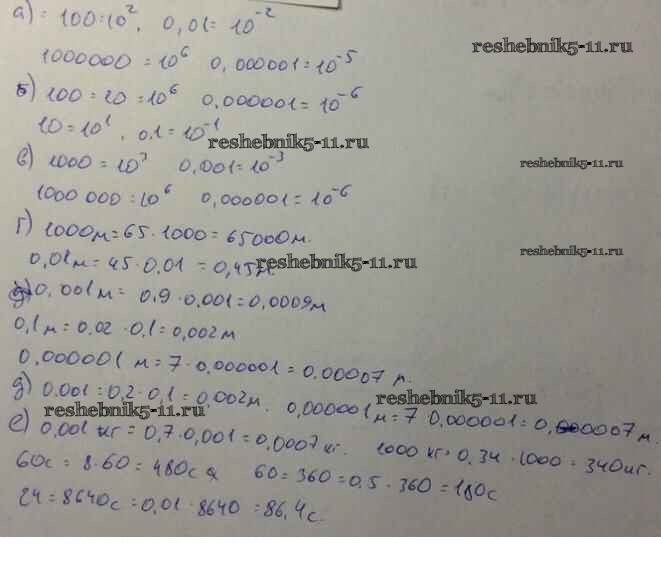 а) = 100=10², 0,01= 10⁻²
reshebnik5-11.ru
1000000 = 10⁶ 0,000001=10⁻⁵
б) 100=20=10⁶ 0,000001=10⁻⁶
10=10¹, 0,1=10⁻¹
reshebnik5-11.ru
в) 1000=10³ 0,001=10⁻³
reshebnik5-11.ru
1000 000=10⁶ 0,000001=10⁻⁶
г) 1000м=65·1000=65000м.
0,01м=45·0,01=0,45м.
reshebnik5-11.ru
reshebnik5-11.ru
0,001м= 0,9·0,001=0,0009м
0,1м=0.02·0,1=0,002м
0,000001 м=7·0,000001=0.00007 м.
д) 0.001=0,2·0,1=0,002м. 0,000001м=7·0,000001=0,000007м.
reshebnik5-11.ru
reshebnik5-11.ru
е) 0,001 кг=0,7·0,001=0,0007кг. 1000 кг=0,34·1000=340кг.
60с=8·60=480с 60=360=0.5·360=180с
24=8640с=0,01·8640=86,4с.